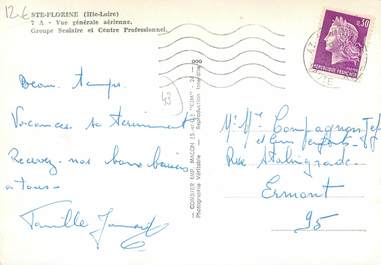 12-6
STE-FLORINE (Hte-Loire)
7 A - Vue générale aérienne.
Groupe Scolaire et Centre Professionnel.
0,30
REPUBLIQUE FRANÇAISE
Beau temps.
Vacances se terminent
Recevez nos bons baisers
à tous.
Famille
COMBIER IMP. MACON (S.-et-L.) "CIM"
Photographie Véritable - Reproduction interdite
M. Mme Compagnon Jef
et leurs enfants
Rue Stalingrad
Ermont
95